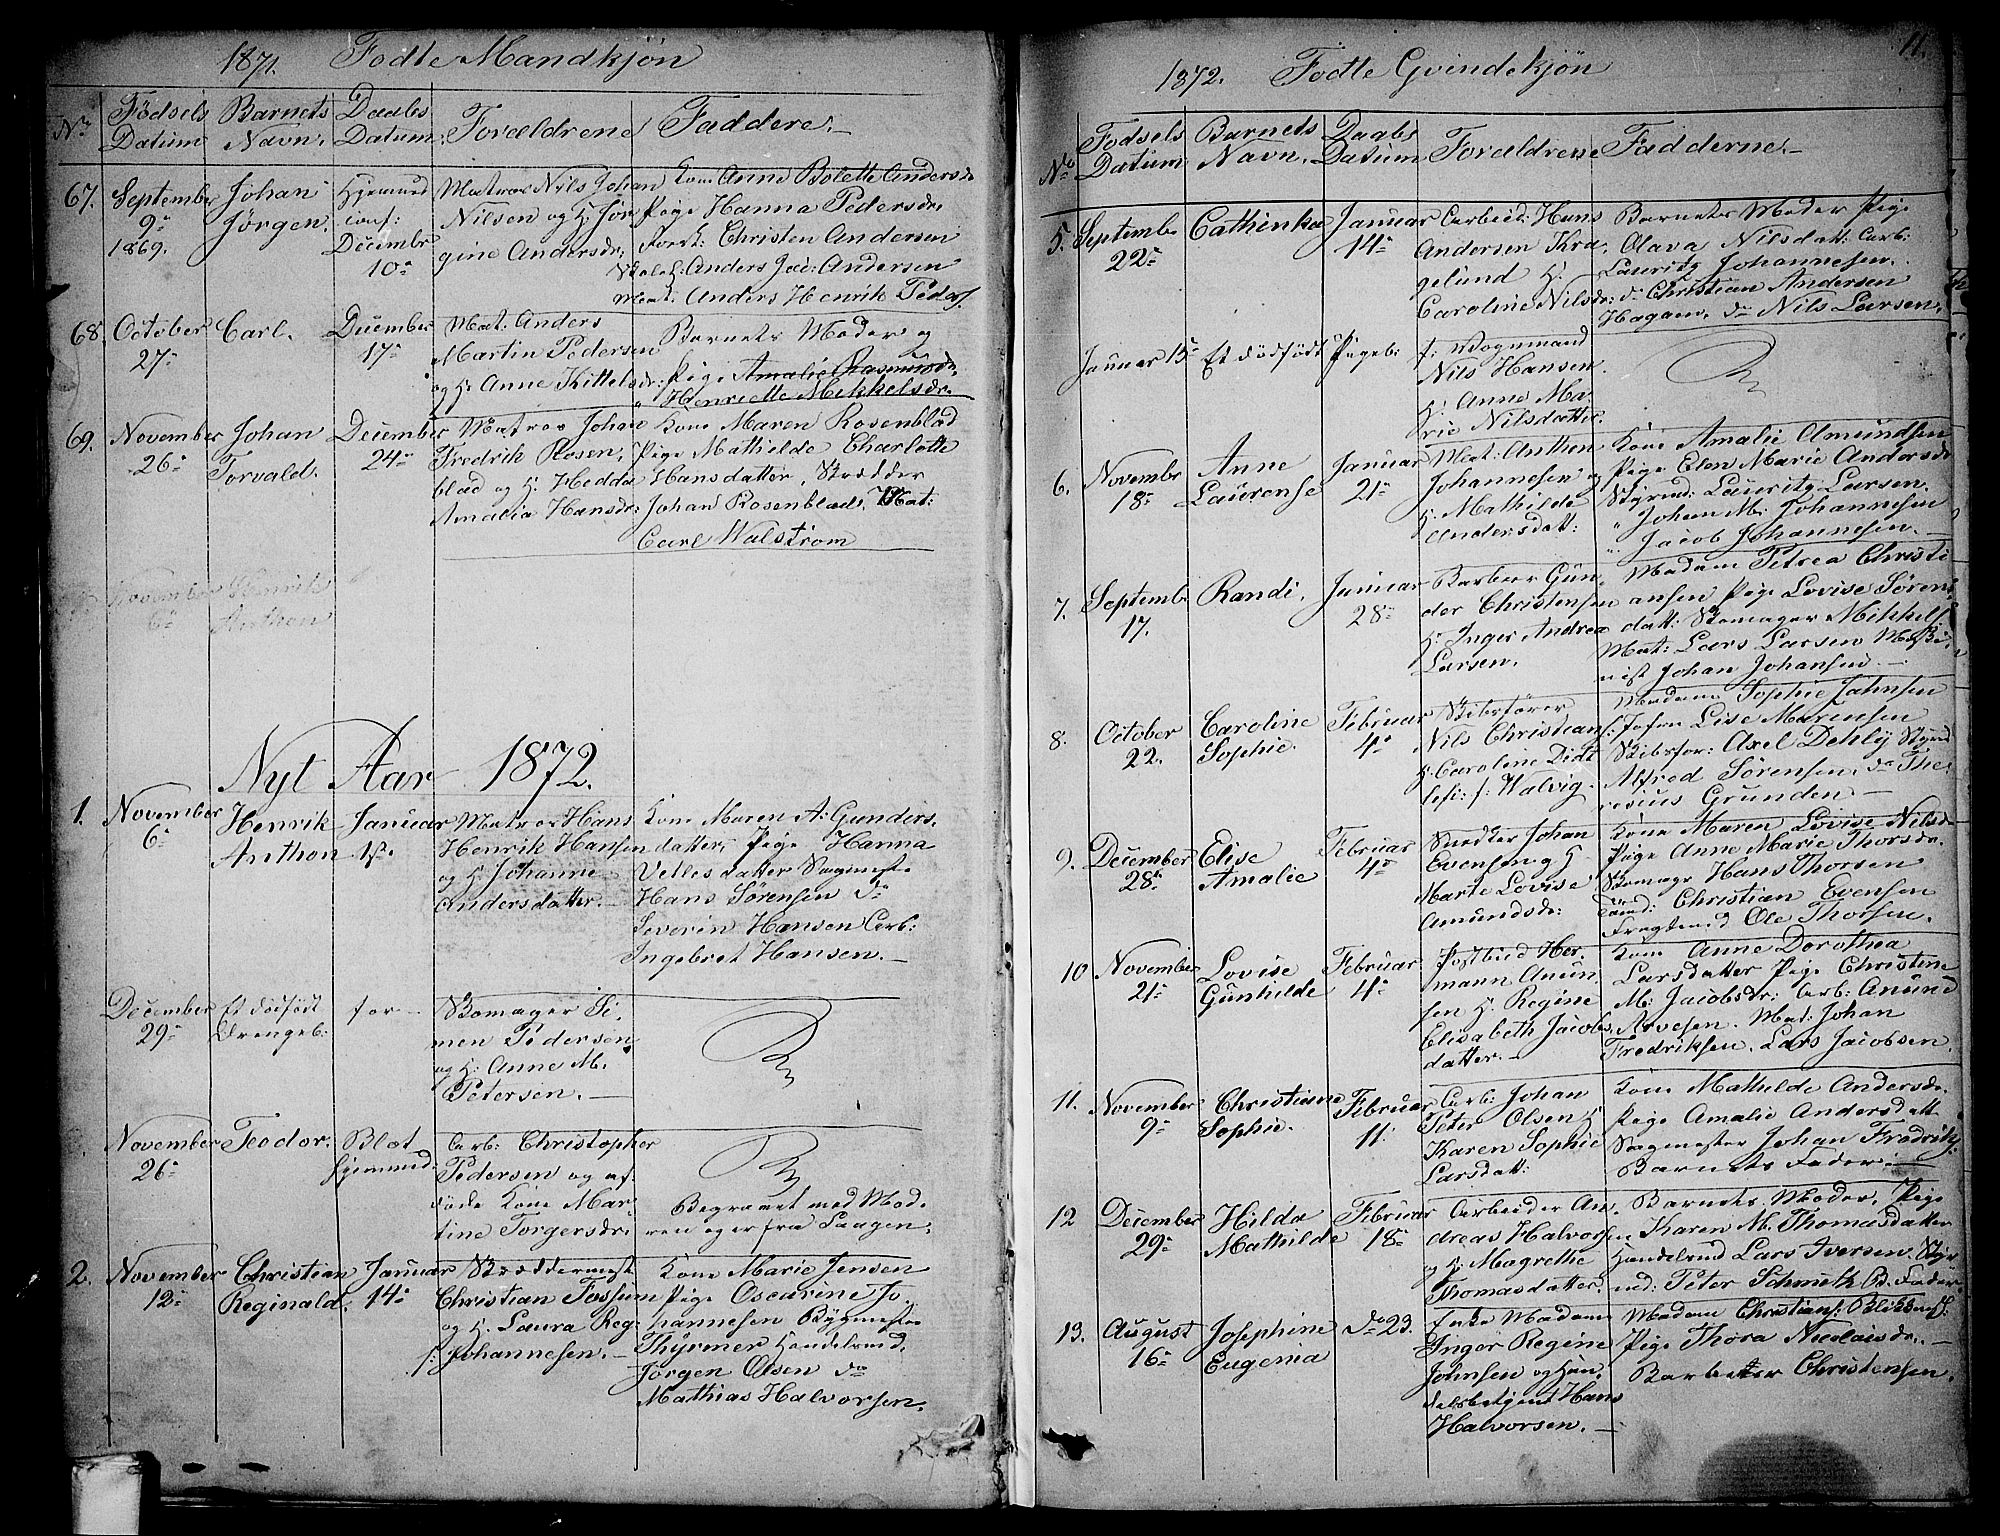 1871. Fodte Mandkjön
No Födsels Datum Barnets Navn. Daabs Datum. Forældrene Faddere.
67. September 9de 1869. Johan Jörgen. Hjemmed conf: Decembr 10de
Matros Nils Johan
Nilsen og H. Jör
gine Andersdr:
Kone Anne Bolette Andersdr
Pige Hanna Pedersdr:
Forst: Christen Andersen
Anders Jac: Andersen
Mat: Anders Henrik Peders.
68. October 27de Carl. December 17de
Mat: Anders
Martin Pedersen
og H. Anne Kittelsdr:
Barnets Moder og
Pige Amalie Rasmusdr.
" Henriette Mikkelsdr.
69. November 26de Johan Torvald. December 24de
Matros Johan
Fredrik Rosen,
blad og H. Hedda
Amalia Hansdr:
Kone Maren Rosenblad
Pige Mathilde Charlotte
Hansdatter, Skrædder
Johan Rosenblad, Mat:
Carl Walström
November 6de Henrik Anthon
Nyt Aar 1872.
1. November 6de Henrik Anthon Januar 1ste.
Matros Hans
Henrik Hansen
og H. Johanne
Andersdatter.
Kone Maren A. Gunders,
datter, Pige Hanna
Vellesdatter Sagmest.
Hans Sörensen do
Severin Hansen Arb:
Ingebret Hansen. —
December 29de Et dödfödt Drengeb: for
Skomager Si,
men Pedersen
og H. Anne M.
Petersen. —
November 26de Teodor. Blot hjemmed.
Arb: Christopher
Pedersen og af,
döde Kone Mar,
tine Torgersdr:
Begravet med Mod,
ren og er fra Laagen.
2. November 12de Christian Reginald. Januar 14de
Skræddermest
Christian Fossum
og H. Laura Reg:
f: Johannesen. —
Kone Marie Jensen
Pige Oscarine Jo,
hannesen Bygmester
Thyrmer Handelsmd.
Jörgen Olsen do
Mathias Halvorsen.
11.
1872. Fodte Qvindekjön
No Fodsels Datum Barnets Navn. Daabs Datum Forældrene Fadderne. —
5. Septembr 22de Cathinka Januar 14de
Arbeid: Hans
Andersen Kra,
gelund H.
Caroline Nilsdr:
Barnets Moder Pige
Olava Nilsdatt: Arb:
Lauritz Johannesen.
do Christian Andersen
Hagam, do Nils Larsen.
Januar 15de Et dödfödt Pigeb:
f: Vognmand
Nils Hansen.
H. Anne Ma,
rie Nilsdatter
6. Novembr 18de Anne Laurense Januar 21de
Mat: Anthon
Johannesen og
H. Mathilde
Andersdatt:
Kone Amalie Amundsen
Pige Elen Marie Andersdr
Styrmd: Lauritz Larsen.
" Johan M. Johannesen
" Jacob Johannesen. —
7. Septemb. 17. Randi, Januar 28de
Barbeer Gün,
der Christensen
H. Inger Andrea
Larsen.
Madam Petrea Christi
ansen Pige Lovise Sörens
datt: Skomager Mikkels.
Mat: Lars Larsen Maski,
nist Johan Johansen. —
8. October 22. Caroline Sophie. Februar 4de
Skibsförer
Nils Christians:
H. Caroline Didr
lefs: f: Walvig.
Madam Sophie Jahnsen
Jfru Lise Marensen
Skibsför: Axel Dehly Styrmd
Alfred Sörensen, do The,
resius Grunden —
9. December 28de Elise Amalie Februar 4de
Snedker Johan
Evensen og H
Marte Lovise
Amundsdr:
Kone Maren Lovise Nilsdr
Pige Anne Marie Thorsdr.
Skomagr Hans Thorsen
Tömd: Christian Evensen
Fragtemd Ole Thorsen.
10 November 21de Lovise Gunhilde Februar 4de
Postbud Her,
mann Anun,
sen H. Regine
Elisabeth Jacobs,
datter. —
Kone Anne Dorothea
Larsdatter Pige Christine
M. Jacobsdr: Arb: Anund
Arvesen. Mat: Johan
Fredriksen. Lars Jacobsen.
11. November 9de Christiane Sophie. Februar 11.
Arb: Johan
Peter Olsen H.
Karen Sophie
Larsdatt:
Kone Mathilde Andersdr.
Pige Amalie Andersdatt
Sagmester Johan Fredriks.
Barnets Fader. —
12 December 29de Hilda Mathilde Februar 18de
Arbeider An,
dreas Halvorsen
og H. Magrethe
Thomasdatter.
Barnets Moder, Pige
Karen M. Thomasdatter
Handelsmd Lars Iversen. Styr
md: Peter Schmelk B. Fader
13. August 16de Josephine Eugenia do 23.
Enke Madam
Inger Regine
Johnsen og Han,
delsbetjent Hans
Halvorsen. —
Madam Christians: Blikkensl:
Pige Thora Nicolaisdr. —
Barbeer Christensen.